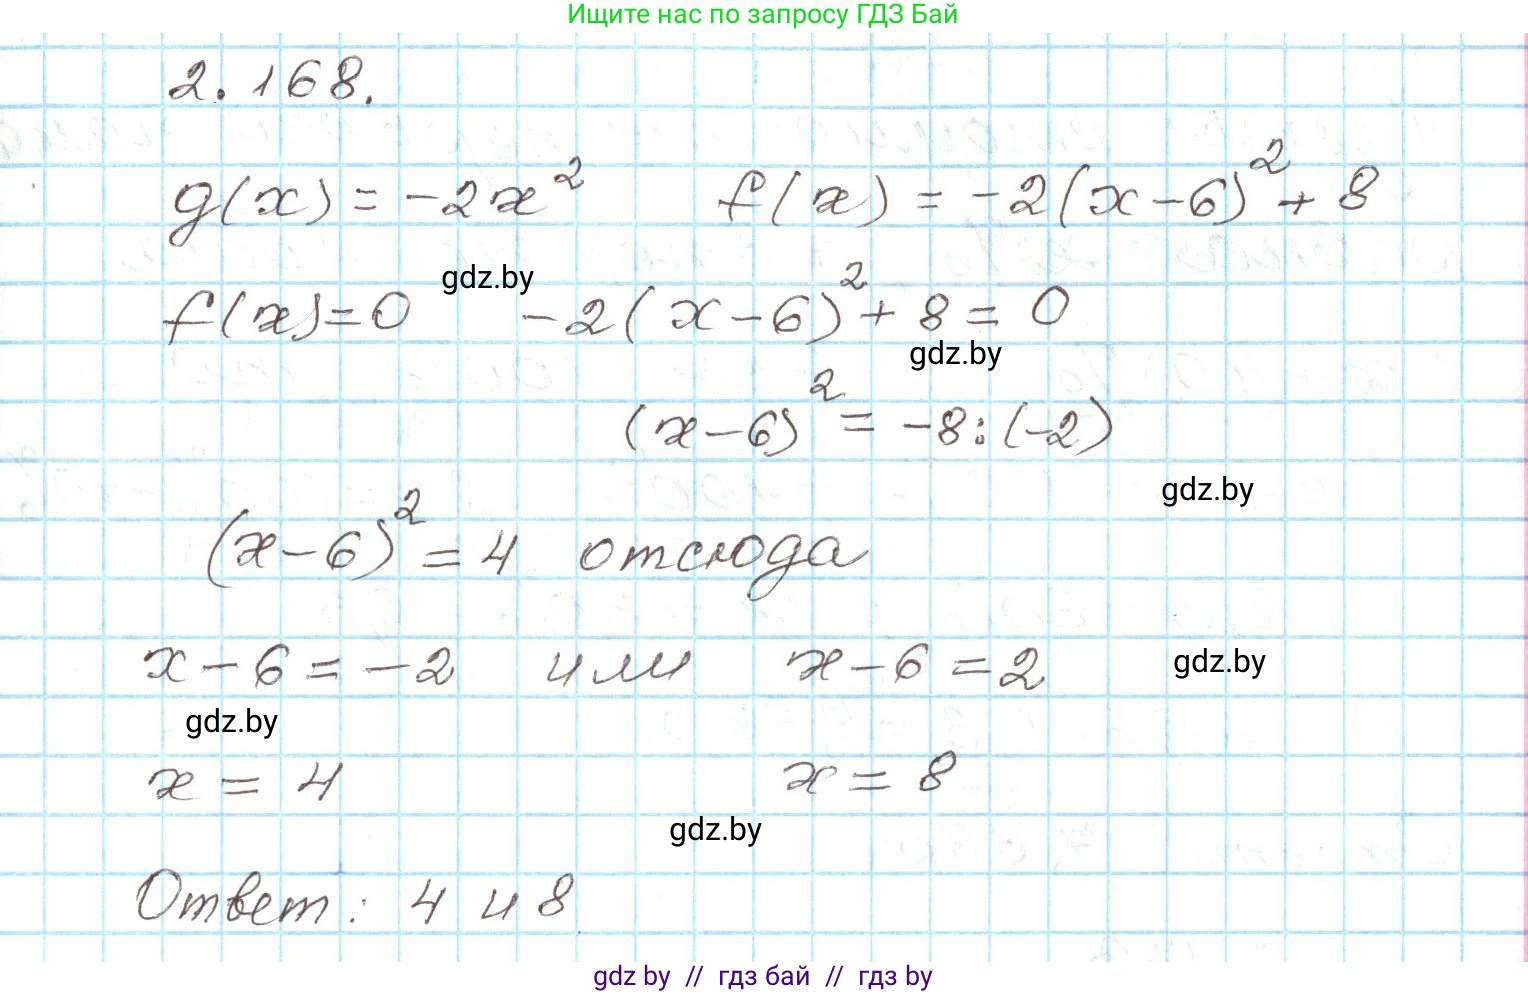 Ищите нас по запросу ГДЗ Бай
2.168.
g(x) = -2x² f(x) = -2(x-6)² + 8
gdz.by
f(x)=0 -2(x-6)² + 8 = 0
gdz.by
(x-6)² = -8:(-2)
gdz.by
(x-6)² = 4 отсюда
x-6=-2 или x-6=2
gdz.by
gdz.by
x = 4 x = 8
gdz.by
Ответ: 4 и 8
gdz by // гдз бай // гдз by